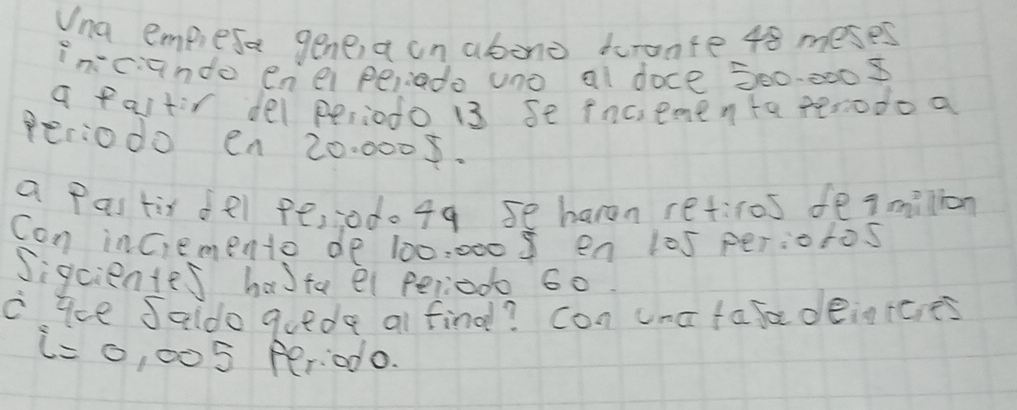 Una empresa genera un abono durante 48 meses
iniciando en el periodo uno al doce 500.000$
a partir del periodo 13 se incrementa periodo a
periodo en 20.000$.
a partir del periodo 49 se haran retiros de 1 millon
con incremento de 100.000$ en los periodos
siguientes hasta el periodo 60.
¿que saldo queda al final? con una tasa de interes
i= 0,005 periodo.